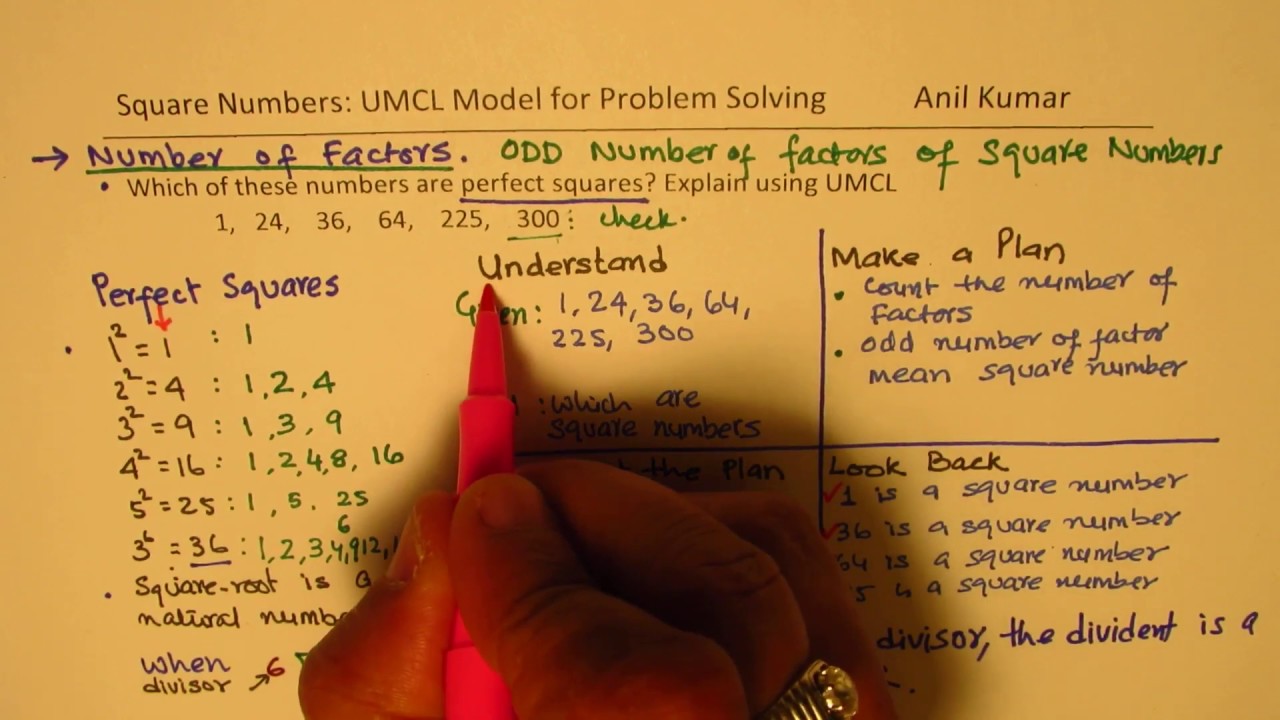 Square Numbers: UMCL Model for Problem Solving Anil Kumar
→ Number of Factors. ODD Number of factors of Square Numbers
• Which of these numbers are perfect squares? Explain using UMCL
1, 24, 36, 64, 225, 300 : check.
Perfect Squares
• 1² = 1 : 1
2² = 4 : 1, 2, 4
3² = 9 : 1, 3, 9
4² = 16 : 1, 2, 4, 8, 16
5² = 25 : 1, 5. 25
6
3⁶ = 36 : 1, 2, 3, 4, 9 12, 1
• Square-root is a
natural numb
when
divisor → 6
Understand
: 1, 24, 36, 64,
225, 300
: which are
square numbers
the Plan
Make a Plan
• Count the number of
Factors
• odd number of factor
mean square number
Look Back
✓ 1 is a square number
✓ 36 is a square number
64 is a square number
5 is a square number
divisor, the divident is a